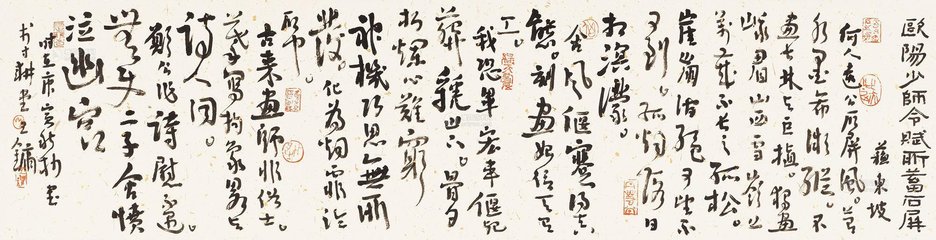 歐陽少師令賦所蓄石屏
蘇東坡
何人遺公石屏風。上有
水墨希微蹤。不
畫長林與巨植。獨畫
峨眉山西雪嶺上
萬歲不老之孤松。
崖崩澗絕可望不
可到。孤煙落日
相溟濛。
含風偃蹇得真
態。刻畫始信天有
工。
我恐畢宏韋偃死
葬虢山下。骨可
朽爛心難窮
神機巧思無所
發。化為煙霏淪
石中。
古來畫師非俗士。
摹寫物象略與
詩人同。
願公作詩慰不遇。
無使二子含憤
泣幽宮
時在庚寅新秋書
於寸耕堂